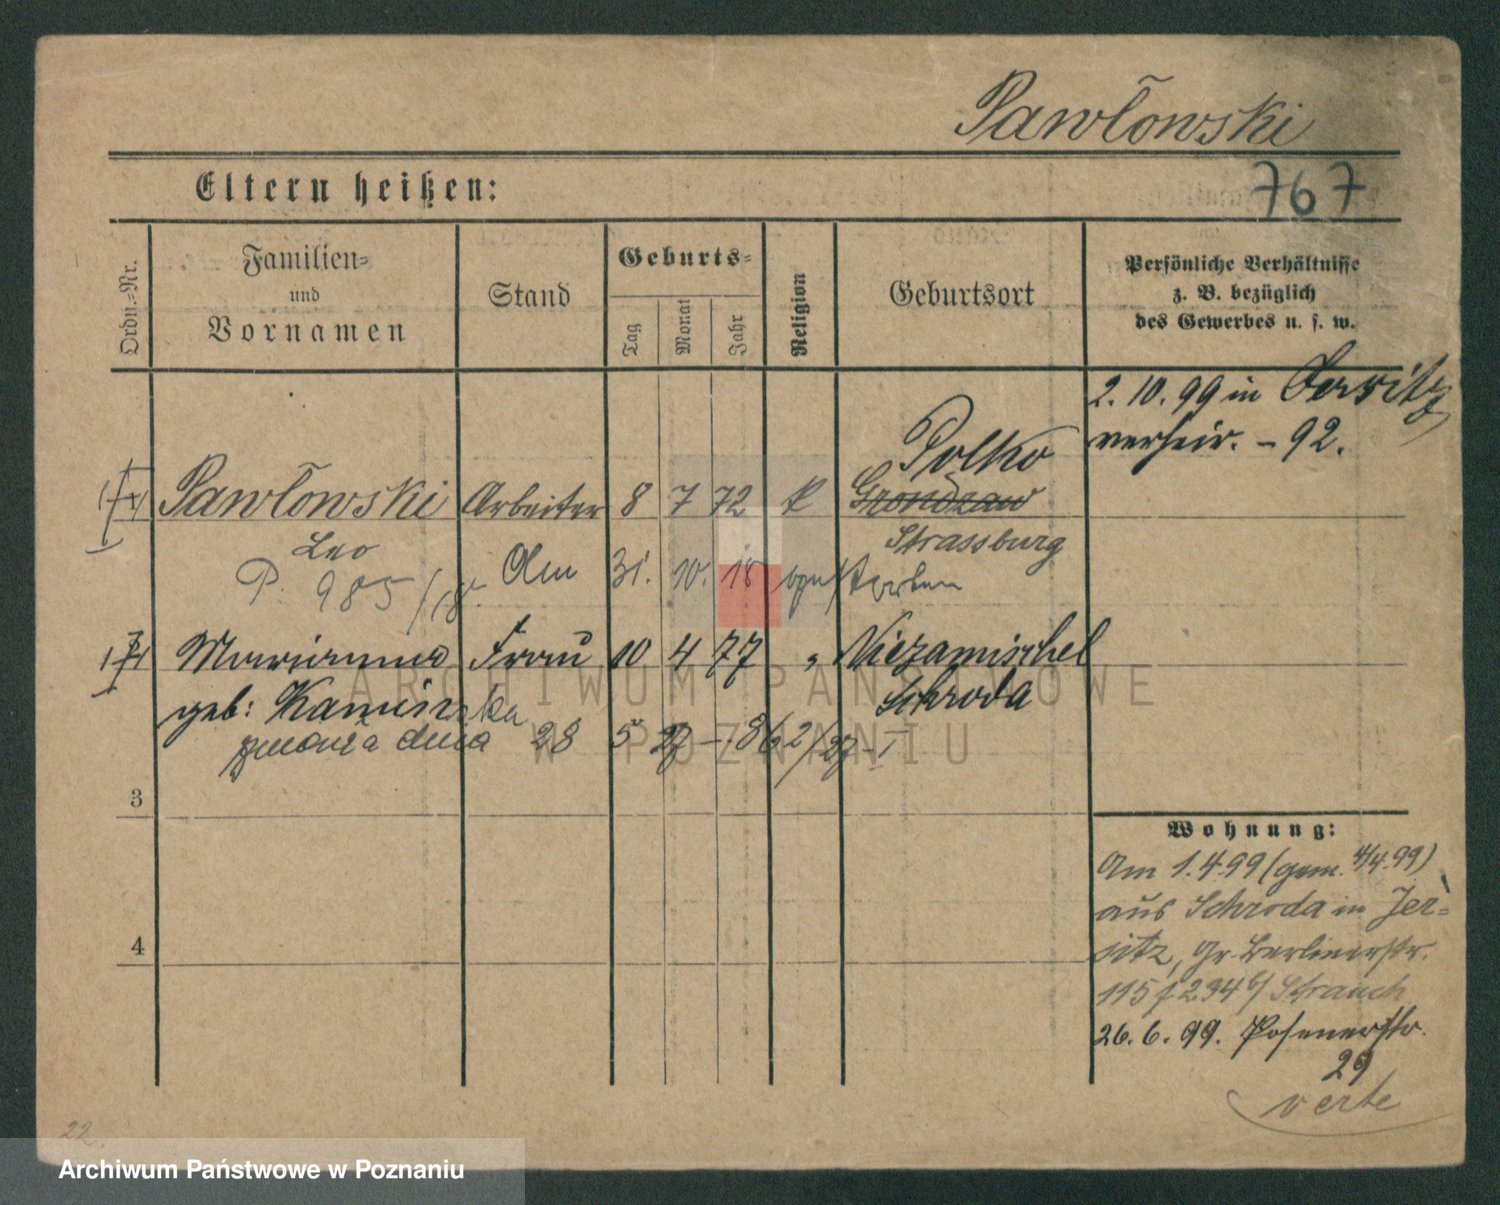 Pawłowski
767
Eltern heißen:
Ordn.-Nr.
Familien-
und
Vornamen
Stand
Geburts-
Tag
Monat
Jahr
Religion
Geburtsort
Persönliche Verhältnisse
z. B. bezüglich
des Gewerbes u. s. w.
2. 10. 99 in Jersitz
verheir. – 92.
Polko
Pawłowski Arbeiter 8 7 72 k
Strassburg
Leo
P. 985/18. 31. 10. 18 verstorben
Marianna Frau 10 4 77 " Niezamischel
geb: Kamińska Schroda
zmarła dnia 28 5 27 – 862/27 – I
3
4
Wohnung:
Am 1.4.99 (gem. 4/4.99)
aus Schroda in Jer-
sitz, Gr. Berlinerstr.
115 f 234 b/ Strauch
26. 6. 99. Posenerstr.
29
verte
22.
ARCHIWUM PAŃSTWOWE
W POZNANIU
Archiwum Państwowe w Poznaniu